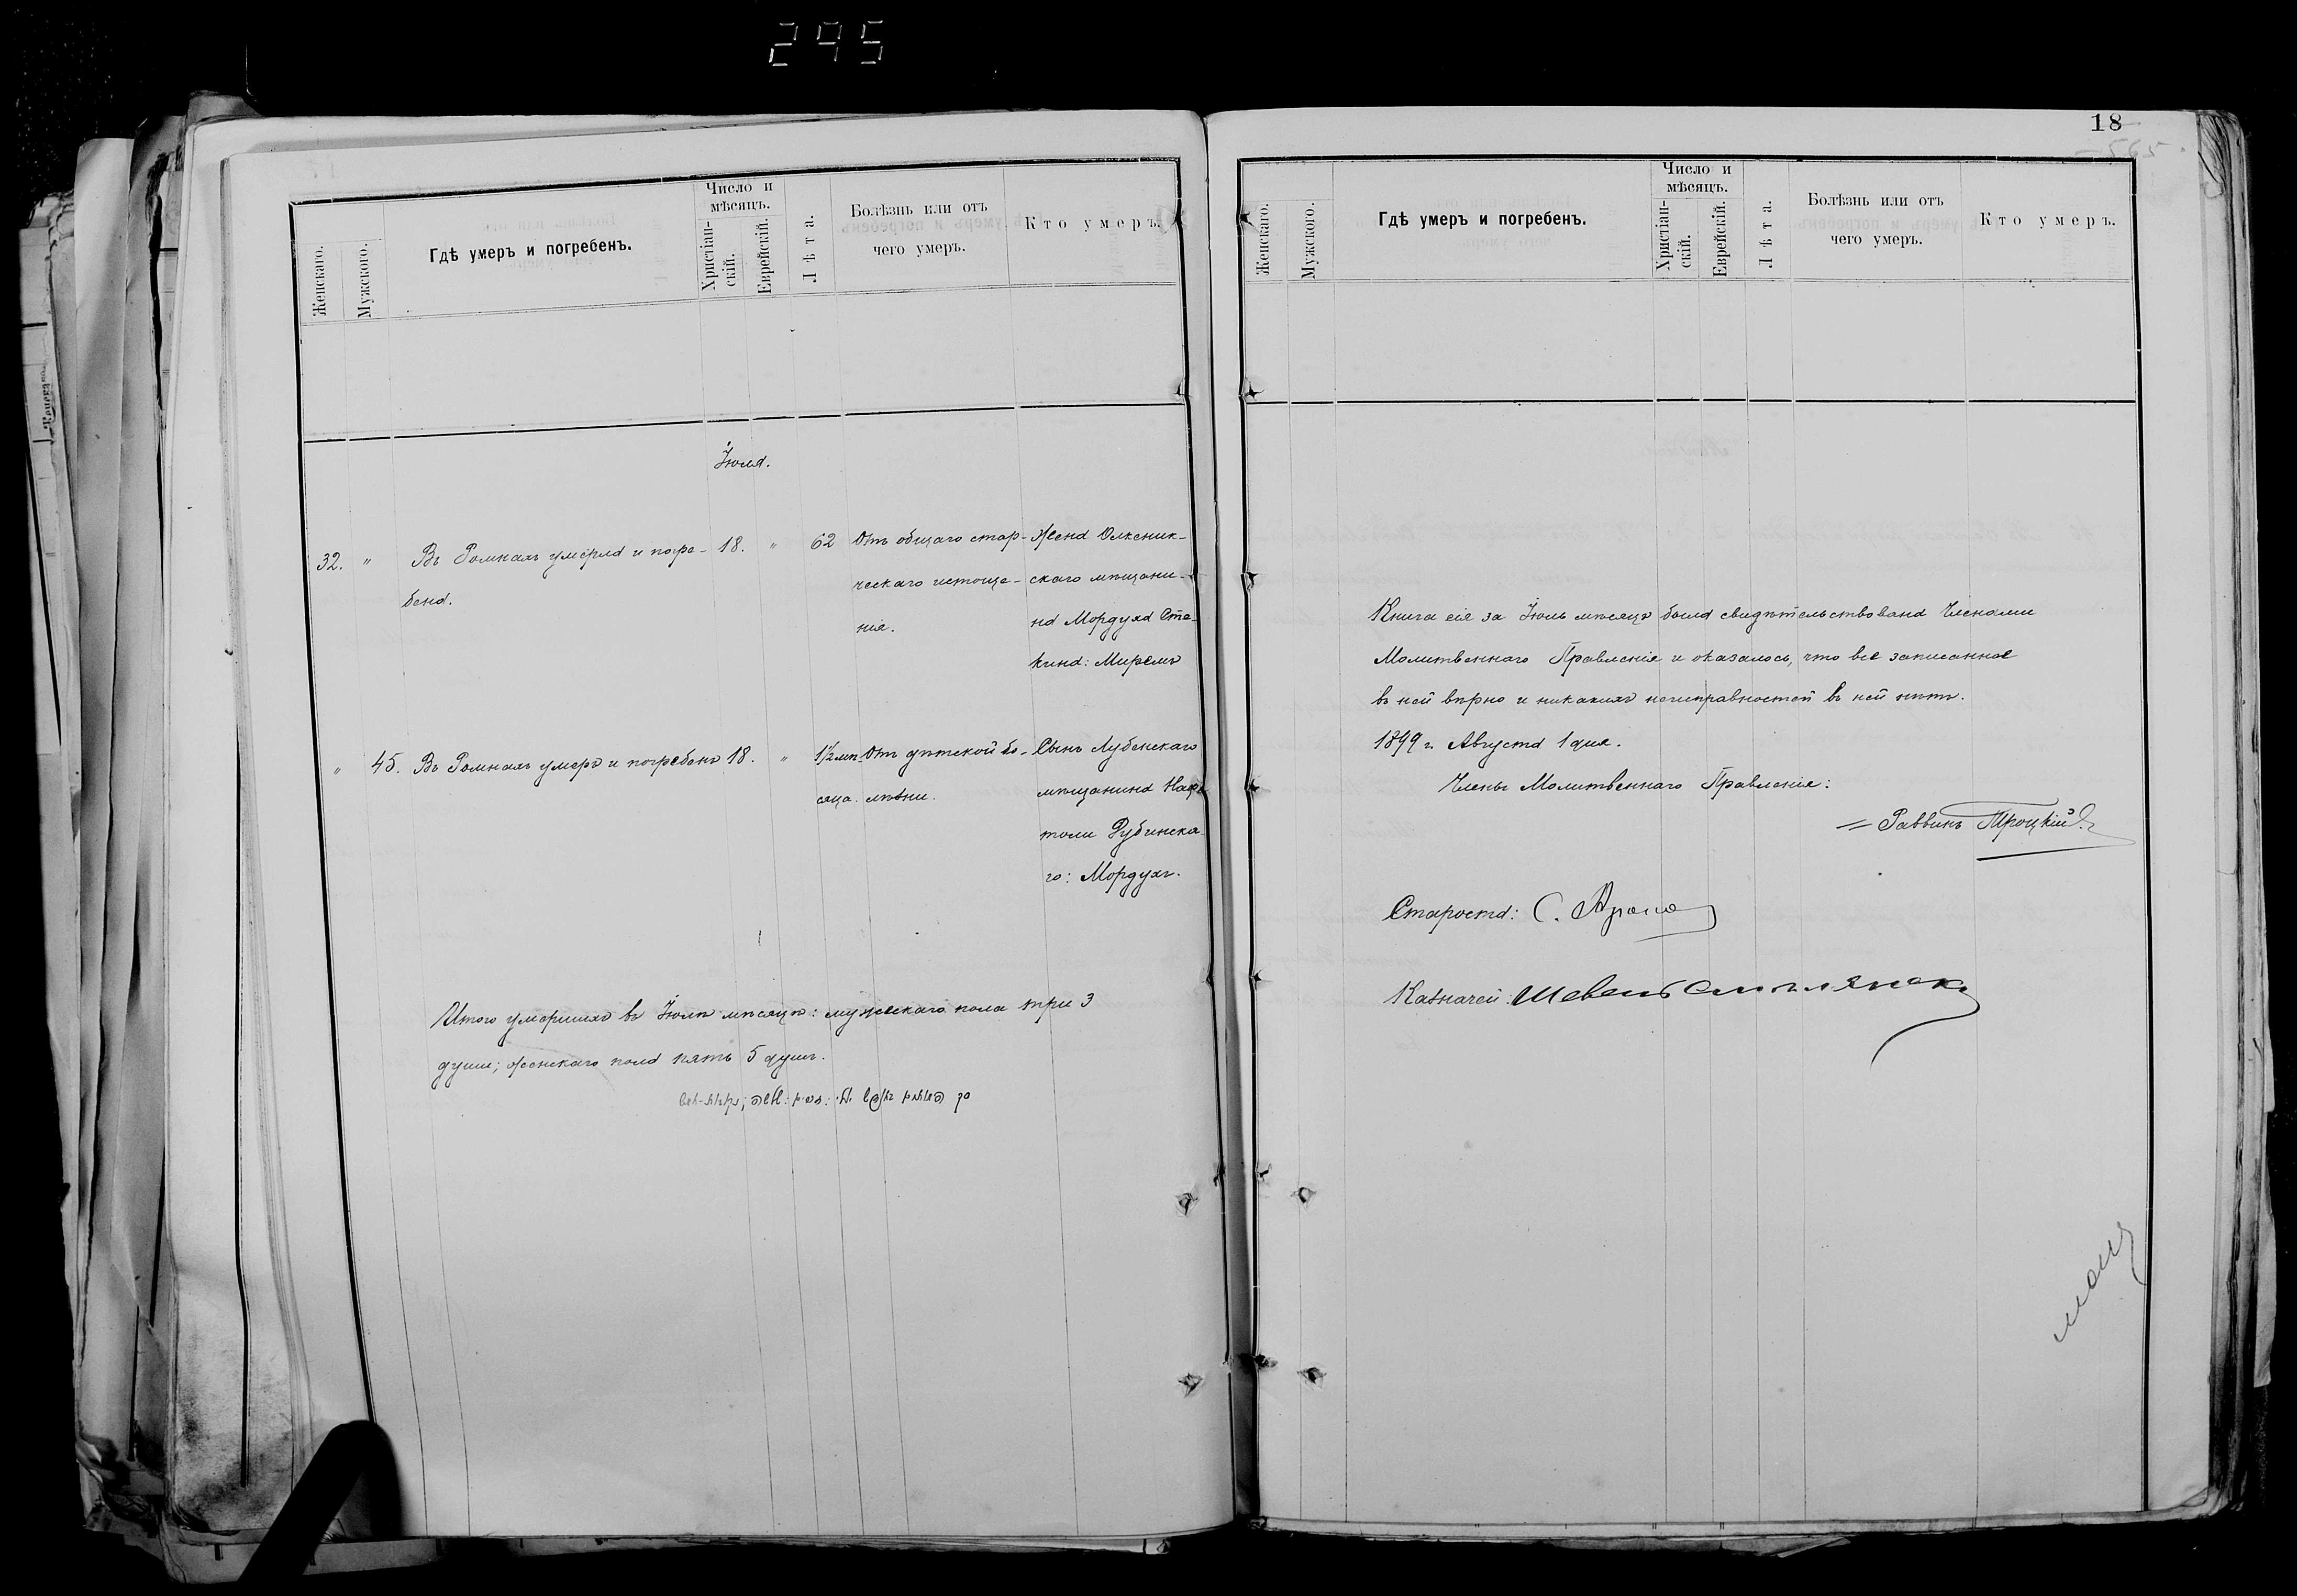 295
Женскаго.
Мужского.
Гдѣ умеръ и погребенъ.
Число и
мѣсяцъ.
Христіан-
скій.
Еврейскій.
Лѣта.
Болѣзнь или отъ
чего умеръ.
Кто умеръ.
Іюля.
32. " Въ Ромнахъ умерла и погре- 18. " 62 Отъ общаго стар- Жена Олкеник-
бена. ческаго истоще- скаго мѣщани-
нія. на Мордуха Сте-
кина: Миремъ
" 45. Въ Ромнахъ умеръ и погребенъ 18. " 1½ мѣ- Отъ дѣтской бо- Сынъ Лубенскаго
сяца. лѣзни. мѣщанина Наф-
толи Рубинска-
го: Мордухъ.
Итого умершихъ въ Іюлѣ мѣсяцѣ: мужескаго пола три 3
души; женскаго пола пять 5 душъ.
18
Женскаго.
Мужского.
Гдѣ умеръ и погребенъ.
Число и
мѣсяцъ.
Христіан-
скій.
Еврейскій.
Лѣта.
Болѣзнь или отъ
чего умеръ.
Кто умеръ.
Книга сія за Іюль мѣсяцъ была свидѣтельствована Членами
Молитвеннаго Правленія и оказалось, что все записанное
въ ней вѣрно и никакихъ неисправностей въ ней нѣтъ.
1899 г. Августа 1 дня.
Члены Молитвеннаго Правленія:
Раввинъ Троцкій
Староста: С.
Казначей: